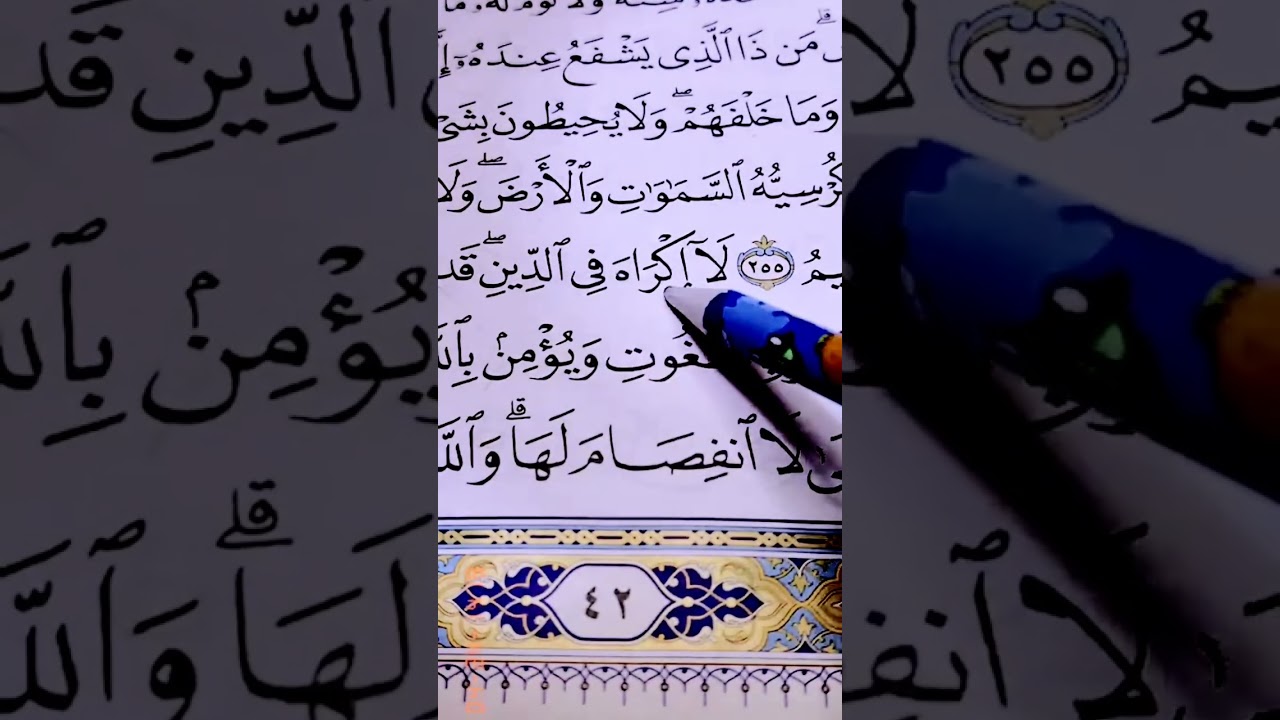 سِنَةٌ وَلَا نَوْمٌ لَّهُۥ مَا
مَن ذَا ٱلَّذِى يَشْفَعُ عِندَهُۥٓ إِ
وَمَا خَلْفَهُمْ ۖ وَلَا يُحِيطُونَ بِشَىْ
كُرْسِيُّهُ ٱلسَّمَٰوَٰتِ وَٱلْأَرْضَ ۖ وَلَا
يمُ ٢٥٥ لَآ إِكْرَاهَ فِى ٱلدِّينِ ۖ قَد
غُوتِ وَيُؤْمِنۢ بِٱللَّ
لَا ٱنفِصَامَ لَهَا ۗ وَٱللَّ
٤٢